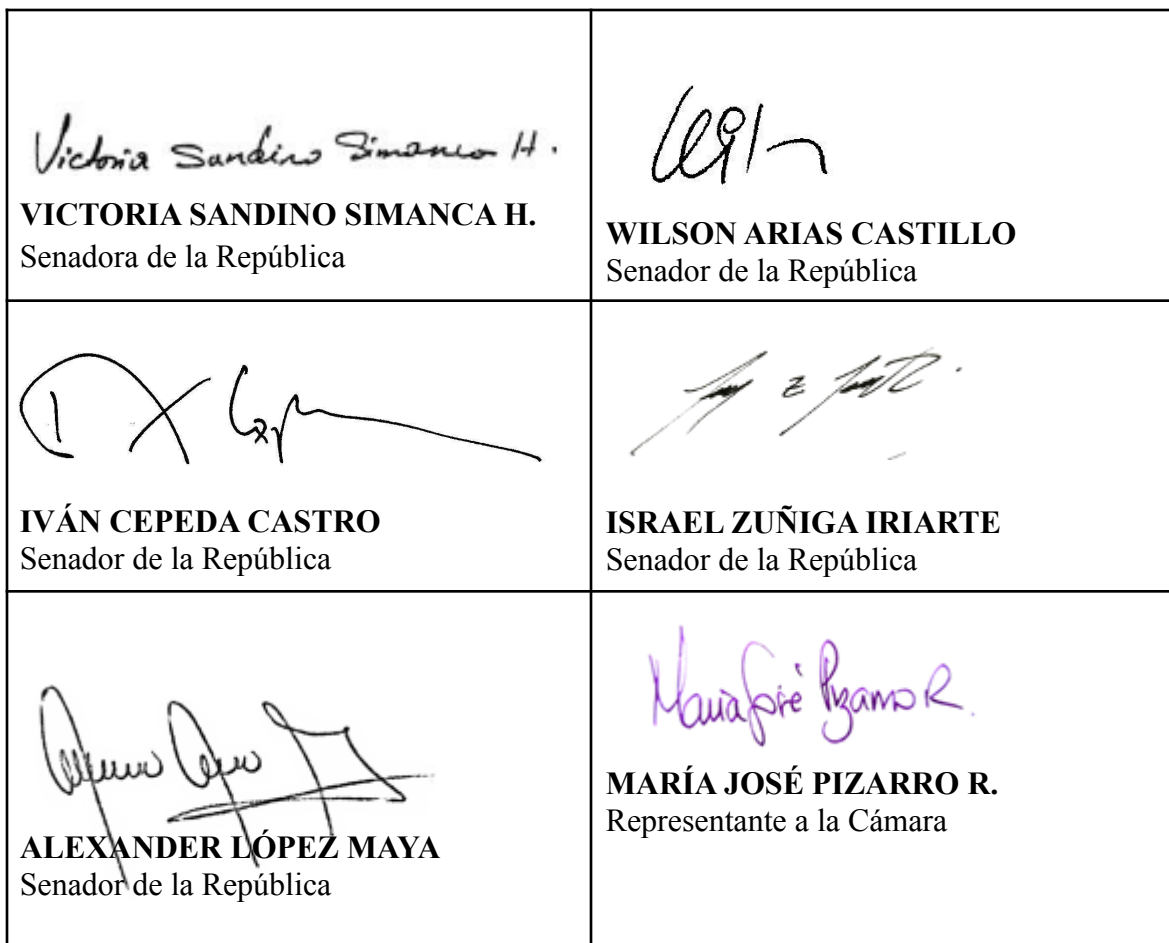 Victoria Sandino Simanca H.
VICTORIA SANDINO SIMANCA H.
Senadora de la República
WILSON ARIAS CASTILLO
Senador de la República
IVÁN CEPEDA CASTRO
Senador de la República
ISRAEL ZUÑIGA IRIARTE
Senador de la República
ALEXANDER LÓPEZ MAYA
Senador de la República
María José Pizarro R.
MARÍA JOSÉ PIZARRO R.
Representante a la Cámara